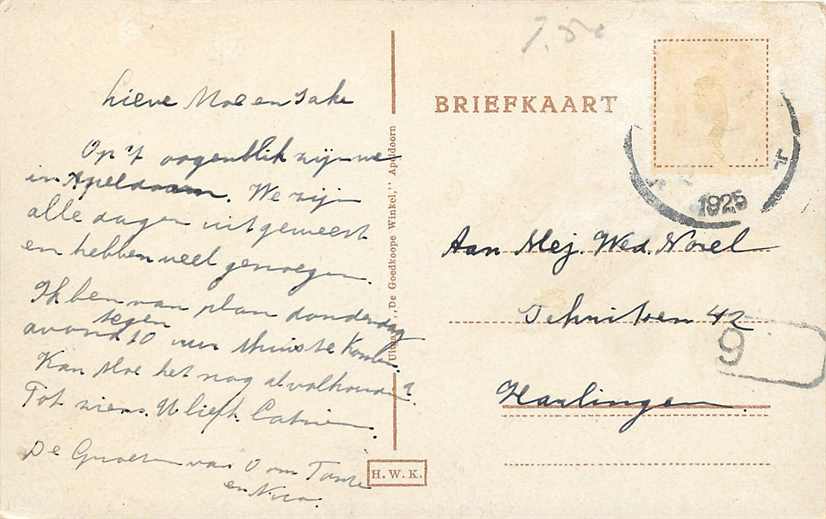 Lieve Moe en Jake
Op 't oogenblik zijn we
in Apeldoorn. We zijn
alle dagen uitgeweest
en hebben veel genoegen.
Ik ben van plan donderdag
avond tegen 10 uur thuis te komen.
Kan Moe het nog al volhouden?
Tot ziens. U liefh. Catrien.
De Groeten van Oom Tante
en Nico.
Uitg. "De Goedkoope Winkel," Apeldoorn
H.W.K.
7.50
BRIEFKAART
1925
Aan Mej. Wed. Norel
Schritsen 42
9
Harlingen